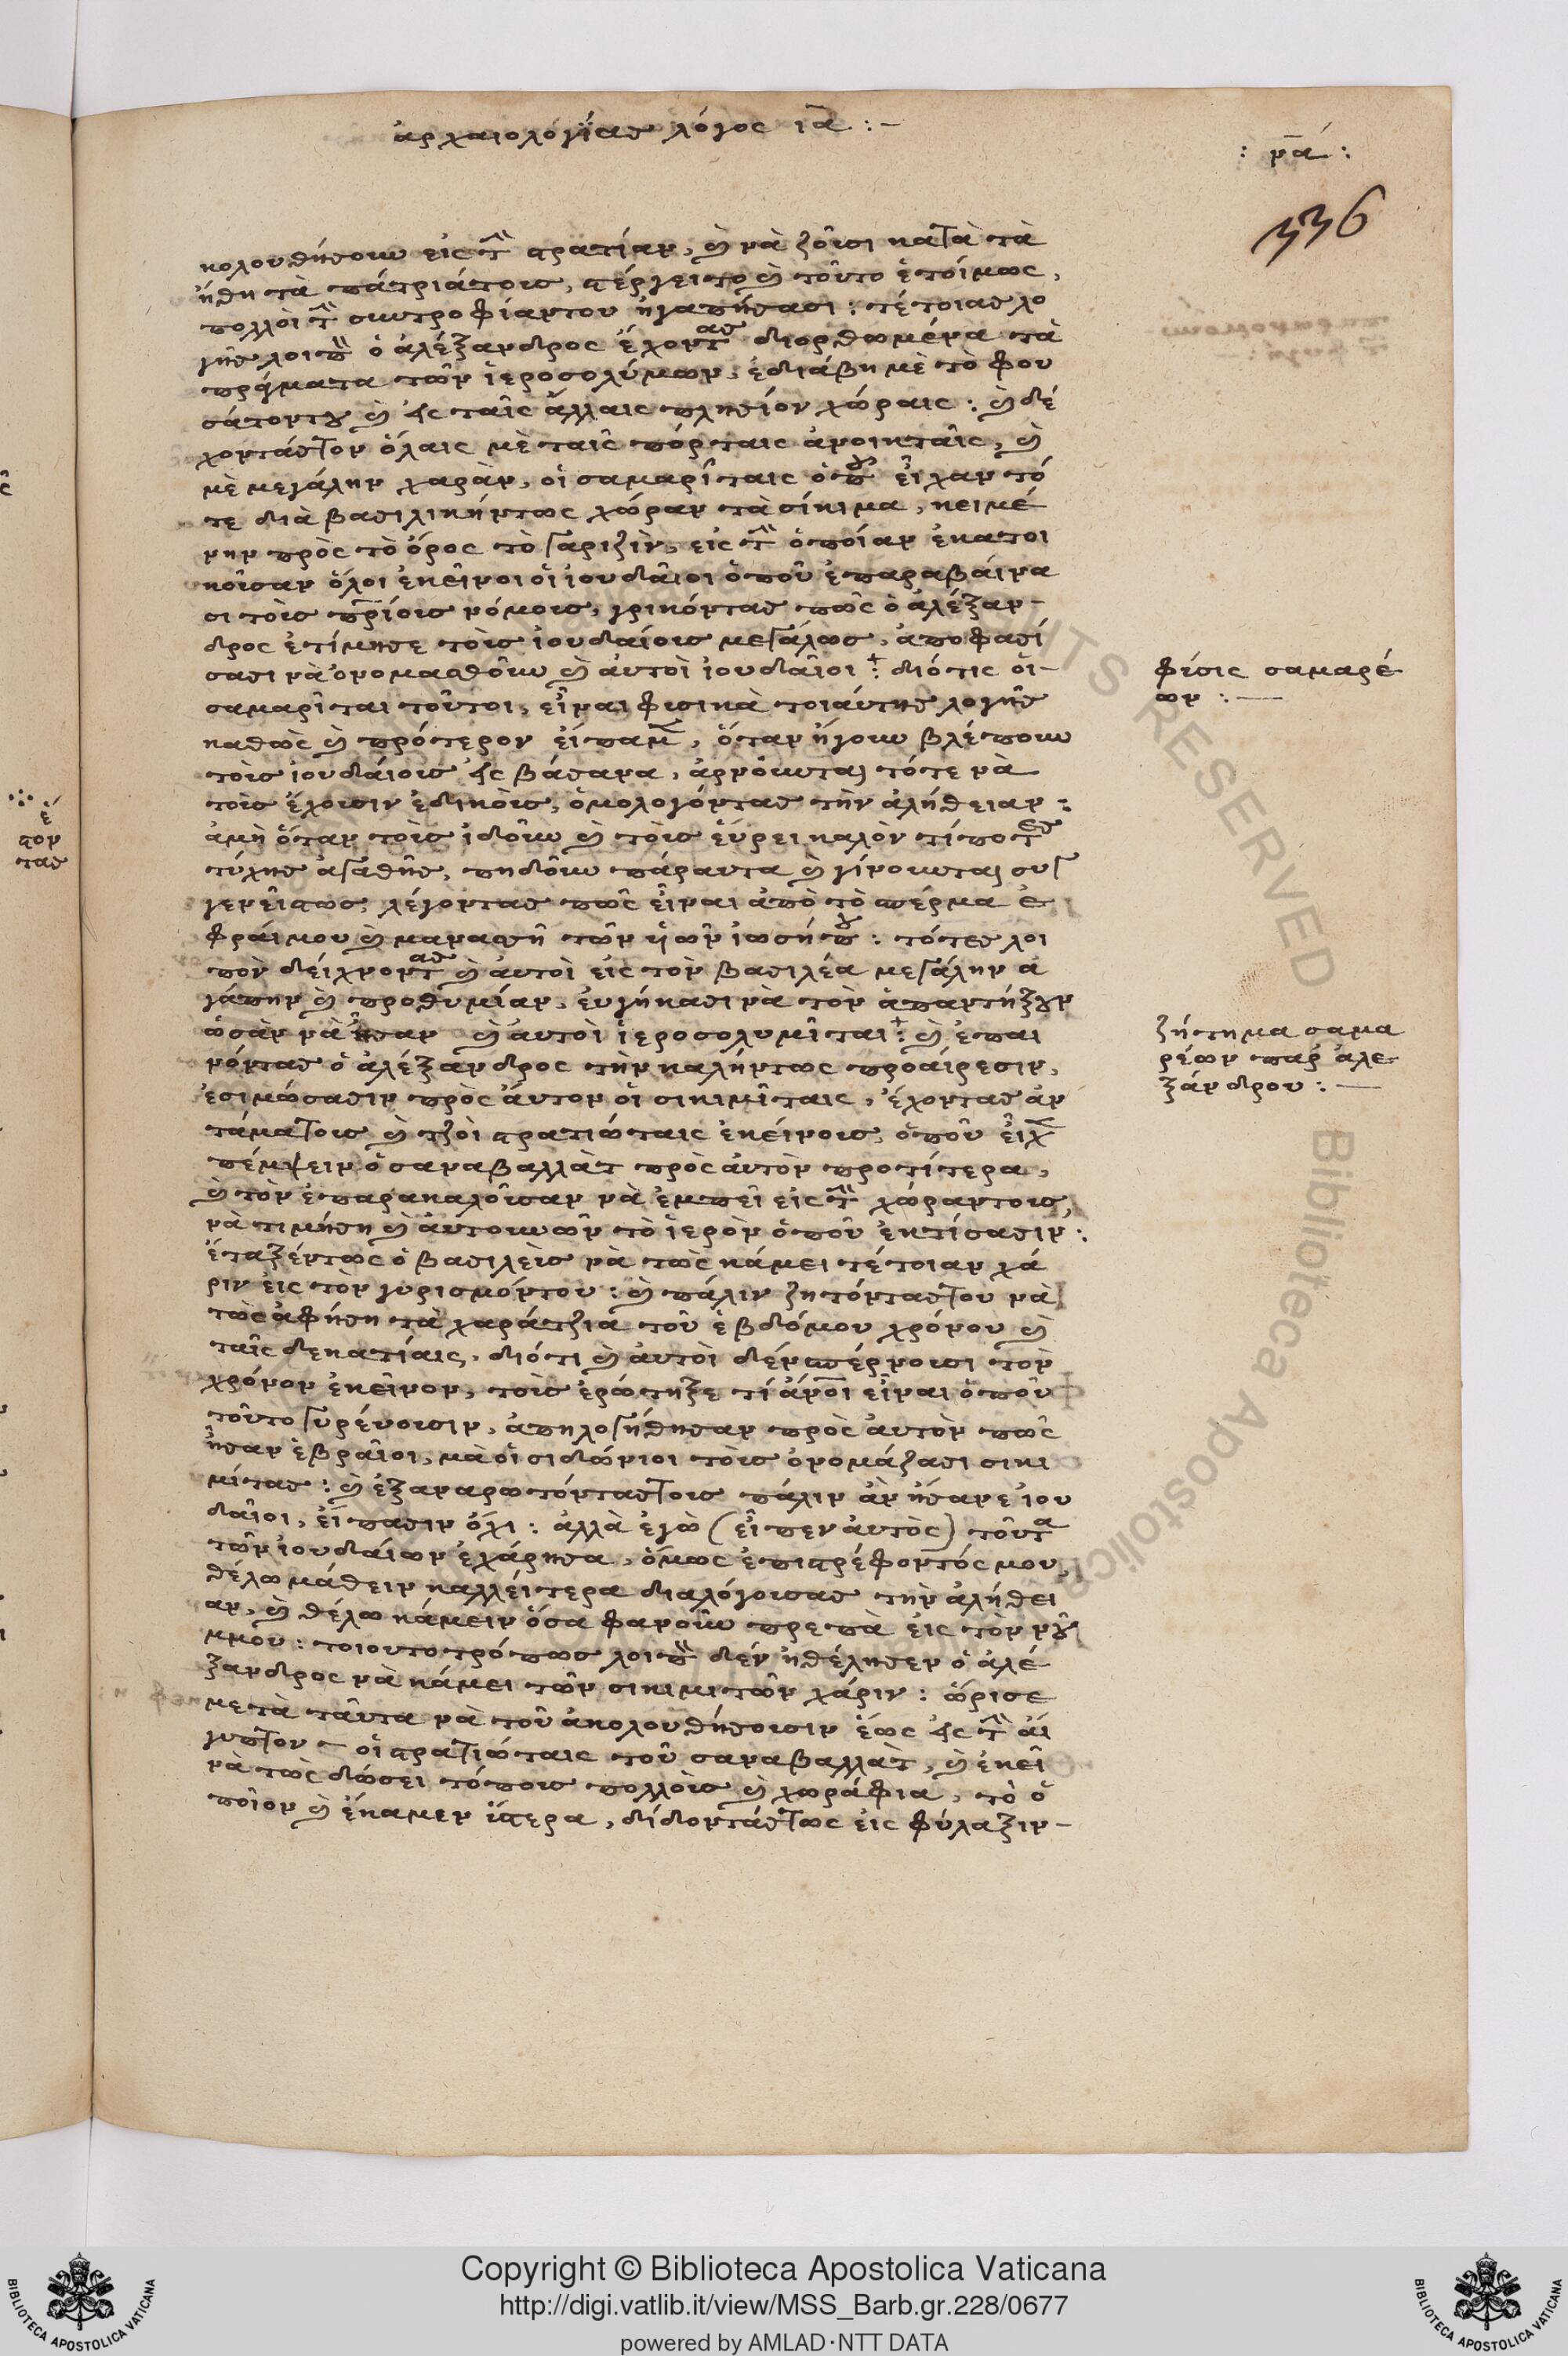 ἀρχαιολογίας λόγος ια :–
: ρά :
336
κολουθήσουν εἰς τὴν στρατίαν, καὶ νὰ ζοῦσι κατὰ τὰ
ἤθη τὰ πάτριάτους, στέργειτο καὶ τοῦτο ἑτοίμως,
πολλοὶ τὴν συντροφίαντου ἠγαπήσασι : τέτοιας λο
γῆς λοιπὸν ὁ ἀλέξανδρος ἔχοντας διορθωμένα τὰ
πράγματα τῶν ἱεροσολύμων, ἐδιάβη μὲ τὸ φου
σάτοντου καὶ εἰς ταῖς ἄλλαις πλησίον χώραις : καὶ δέ
χονταστον ὅλαις μὲ ταῖς πόρταις ἀνοικταῖς, καὶ
μὲ μεγάλην χαρὰν, οἱ σαμαρῖταις ὁποῦ εἶχαν τό
τε διὰ βασιλικήντως χώραν τὰ σίκιμα, κειμέ
νην πρὸς τὸ ὄρος τὸ γαριζὶν, εἰς τὴν ὁποίαν ἐκατοι
κοῖσαν ὅλοι ἐκεῖνοι οἱ ἰουδαῖοι ὁποῦ ἐπαραβαίνα
σι τοὶς πρίους νόμους, γρικόντας πῶς ὁ ἀλέξαν–
δρος ἐτίμησε τοὶς ἰουδαίους μεγάλως, ἀποφασί
σασι νὰ ὀνομασθοῦν καὶ αὐτοὶ ἰουδαῖοι + : διότις οἱ–
σαμαρῖται τοῦτοι, εἶναι φισικὰ τοιαύτης λογῆς
καθὼς καὶ πρότερον εἴπαμεν, ὅταν ἤγουν βλέπουν
τοὶς ἰουδαίους εἰς βάσανα, ἀρνοῦνται τότε νὰ
τοὶς ἔχουσιν ἐδικοὶς, ὁμολογόντας τὴν ἀλήθειαν :
ἀμὴ ὅταν τοὶς ἰδοῦν καὶ τοὶς εὕρει καλὸν τίποτες
τύχης ἀγαθῆς, πηδοῦν πάραυτα καὶ γίνουνται συγ
γενεῖς τως, λέγοντας πῶς εἶναι ἀπὸ τὸ σπέρμα ἐ
φράιμου καὶ μανασσῆ τῶν ἡῶν ἰωσήπου : τότες λοι
πὸν δείχνοντας καὶ αὐτοὶ εἰς τὸν βασιλέα μεγάλην ἀ
γάπην καὶ προθυμίαν, εὐγήκασι νὰ τὸν ἀπαντήξουν
ὡσὰν νὰ ἦσαν καὶ αὐτοὶ ἱεροσολυμῖται + : καὶ ἐπαι
νόντας ὁ ἀλέξανδρος τὴν καλήντως προαίρεσιν,
ἐσιμώσασιν πρὸς αὐτον οἱ σικιμῖταις, ἔχοντας ἀν
τάματους καὶ τζοὶ στρατιώταις ἐκείνους, ὁποῦ εἶχε
πέμψειν ὁ σαναβαλλὰτ πρὸς αὐτὸν προτίτερα,
καὶ τὸν ἐπαρακαλοῦσαν νὰ ἐμπεῖ εἰς τὴν χώραντους,
νὰ τιμήθη καὶ αὐτουνῶν τὸ ἱερὸν ὁποῦ ἐκτίσασιν :
ἔταξέντως ὁ βασιλεὶς νὰ τὼς κάμει τέτοιαν χά
ριν εἰς τὸν γυρισμόντου : καὶ πάλιν ζητόντάςτου νὰ
τὼς ἀφήση τὰ χαράτζια τοῦ ἑβδόμου χρόνου καὶ
ταῖς δεκατίαις, διότι καὶ αὐτοὶ δὲν σπέρνουσι τὸν
χρόνον ἐκεῖνον, τοὶς ἐρώτηξε τί ἄνοι εἶναι ὁποῦ
τοῦτο γυρένουσιν, ἀπηλογήθησαν πρὸς αὐτὸν πῶς
ἦσαν ἑβραῖοι, μὰ οἱ σιδώνιοι τοὶς ὀνομάζασι σικι
μίτας : καὶ ἐξαναρωτόντάςτους πάλιν ἂν ἦσανε ἰου
δαῖοι, εἴπασιν ὄχι : ἀλλὰ ἐγὼ (εἶπεν αὐτὸς) τοῦτα
τῶν ἰουδαίων ἐχάρησα, ὅμως ἐπιστρέφοντός μου,
θέλω μάθειν καλλείτερα διαλόγουσας τὴν ἀλήθει
αν, καὶ θέλω κάμειν ὅσα φανοῦν πρεπὰ εἰς τὸν νοῦ
μμου : τοιουτοτρόπως λοιπὸν δὲν ἠθέλησεν ὁ ἀλέ
ξανδρος νὰ κάμει τῶν σικιμιτῶν χάριν : ὥρισε
μετὰ ταῦτα νὰ τοῦ ἀκολουθήσουσιν ἕως εἰς τὴν αἴ
γυπτον – οἱ στρατιώταις τοῦ σαναβαλλὰτ, καὶ ἐκεῖ
νὰ τὼς δώσει τόπους πολλοὶς καὶ χωράφια, τὸ ὁ
ποῖον καὶ ἔκαμεν ὕστερα, δίδοντάςτως εἰς φύλαξιν–
φίσις σαμαρέ
ων : —
ζήτημα σαμα
ρέων παρ' ἀλε
ξάνδρου : —